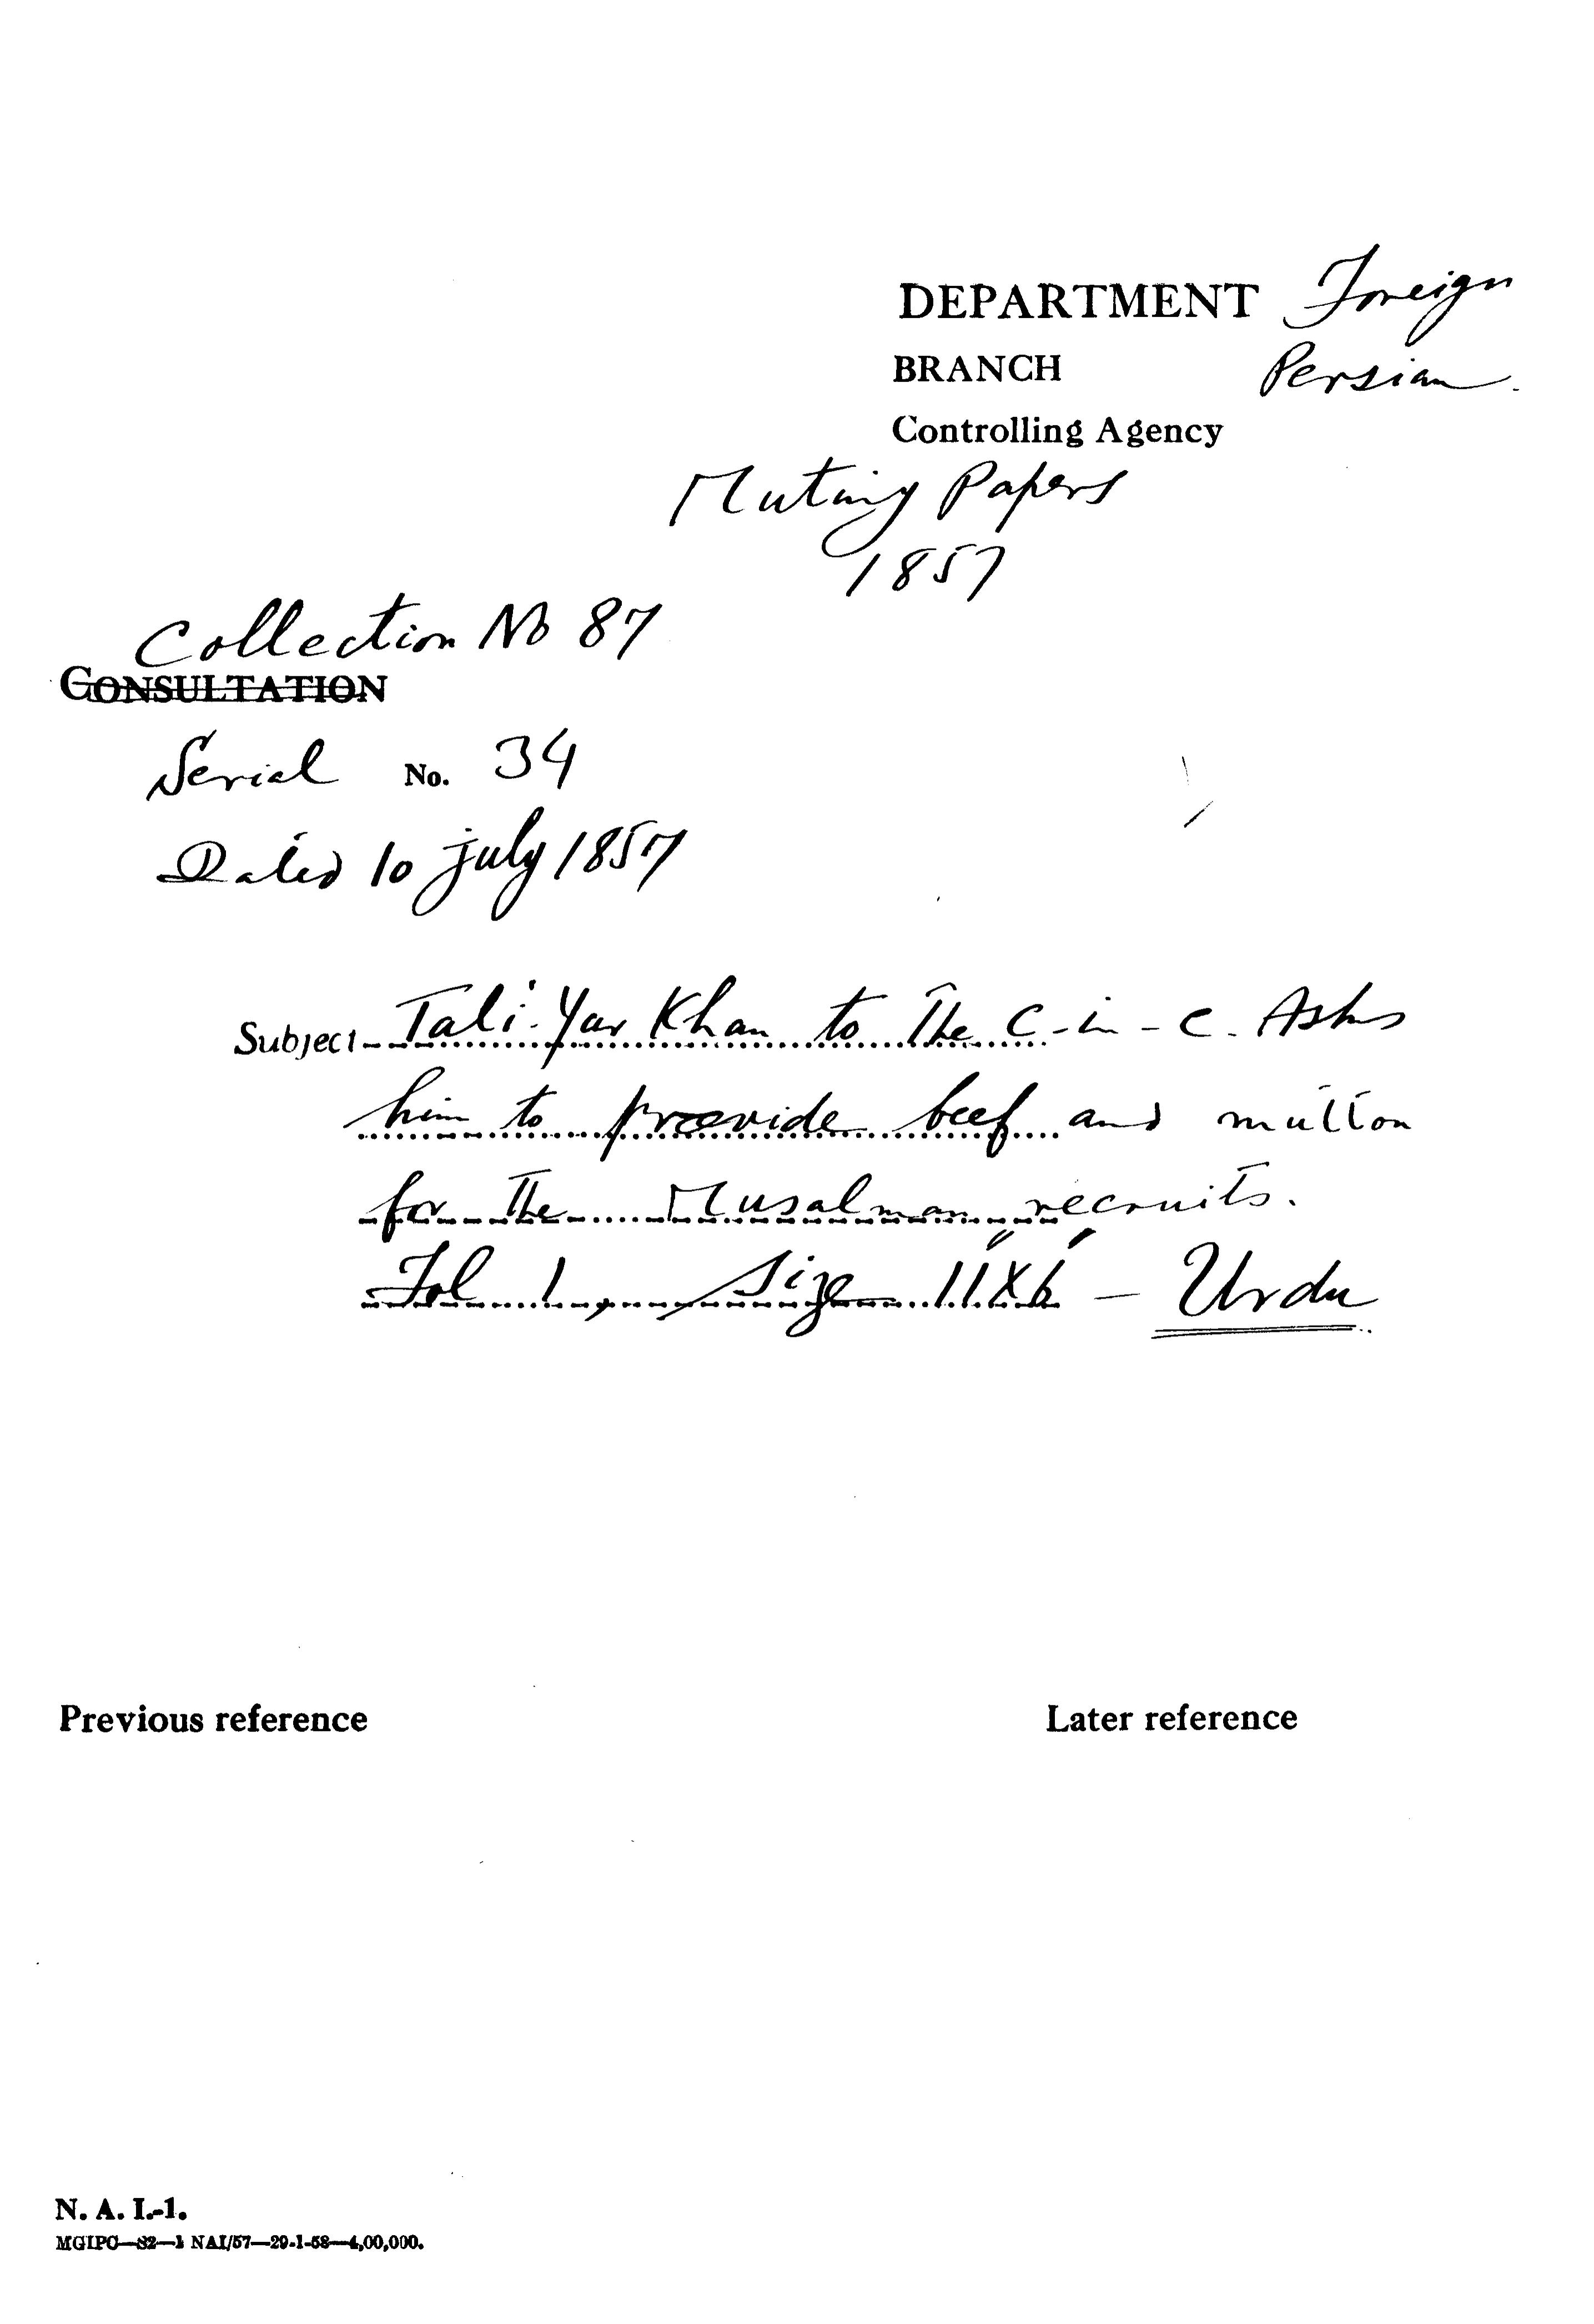 DEPARTMENT Foreign
BRANCH Persian.
Controlling Agency
Mutiny Papers
1857
Collection No 87
CONSULTATION
Serial No. 34
Dated 10 July 1857
Subject Tali-Yar Khan to The C-in-C. Asks
him to provide beef and mutton
for The Musalman recruits.
Fol 1, Size 11"X6" - Urdu
Previous reference
Later reference
N. A. I.-1.
MGIPC—82—1 NAI/57—29-1-58—4,00,000.